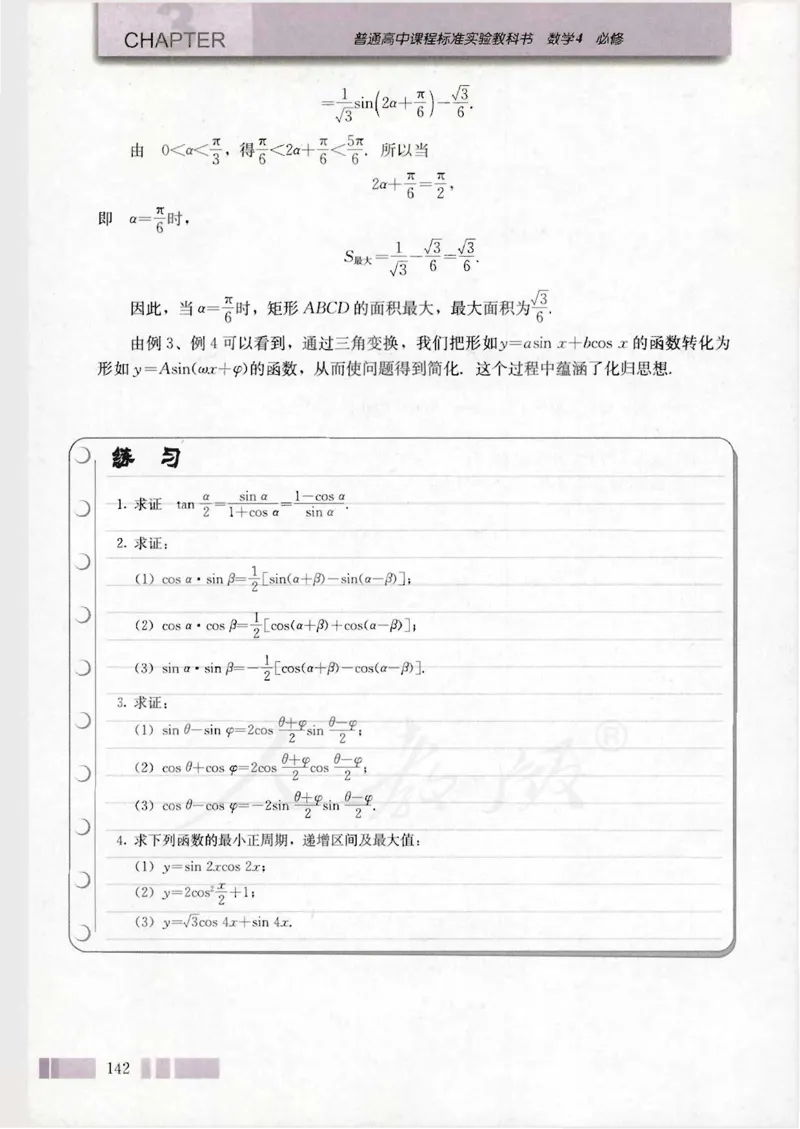 3
CHAPTER 普通高中课程标准实验教科书 数学4 必修
=1/√3 sin(2α+π/6)-√3/6.
由 0<α<π/3，得π/6<2α+π/6<5π/6. 所以当
2α+π/6=π/2，
即 α=π/6时，
S最大=1/√3-√3/6=√3/6.
因此，当α=π/6时，矩形ABCD的面积最大，最大面积为√3/6.
由例3、例4可以看到，通过三角变换，我们把形如y=asin x+bcos x的函数转化为
形如y=Asin(ωx+φ)的函数，从而使问题得到简化. 这个过程中蕴涵了化归思想.
练 习
1. 求证 tan α/2=sin α/(1+cos α)=(1-cos α)/sin α.
2. 求证：
(1) cos α·sin β=1/2[sin(α+β)-sin(α-β)]；
(2) cos α·cos β=1/2[cos(α+β)+cos(α-β)]；
(3) sin α·sin β=-1/2[cos(α+β)-cos(α-β)].
3. 求证：
(1) sin θ-sin φ=2cos (θ+φ)/2 sin (θ-φ)/2；
(2) cos θ+cos φ=2cos (θ+φ)/2 cos (θ-φ)/2；
(3) cos θ-cos φ=-2sin (θ+φ)/2 sin (θ-φ)/2.
4. 求下列函数的最小正周期，递增区间及最大值：
(1) y=sin 2xcos 2x；
(2) y=2cos² x/2+1；
(3) y=√3cos 4x+sin 4x.
人教版®
142